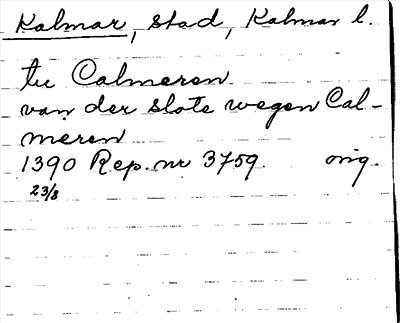 Kalmar, stad, Kalmar l.
tu Calmeren
van der slote wegen Cal-
meren
1390 Rep. nr 3759. orig.
23/8